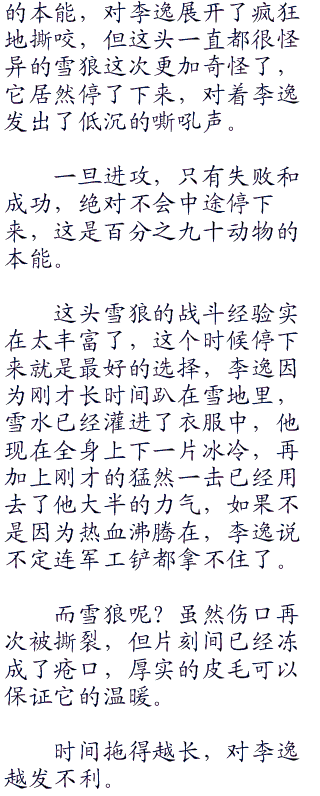 的本能，对李逸展开了疯狂
地撕咬，但这头一直都很怪
异的雪狼这次更加奇怪了，
它居然停了下来，对着李逸
发出了低沉的嘶吼声。
一旦进攻，只有失败和
成功，绝对不会中途停下
来，这是百分之九十动物的
本能。
这头雪狼的战斗经验实
在太丰富了，这个时候停下
来就是最好的选择，李逸因
为刚才长时间趴在雪地里，
雪水已经灌进了衣服中，他
现在全身上下一片冰冷，再
加上刚才的猛然一击已经用
去了他大半的力气，如果不
是因为热血沸腾在，李逸说
不定连军工铲都拿不住了。
而雪狼呢？虽然伤口再
次被撕裂，但片刻间已经冻
成了疮口，厚实的皮毛可以
保证它的温暖。
时间拖得越长，对李逸
越发不利。